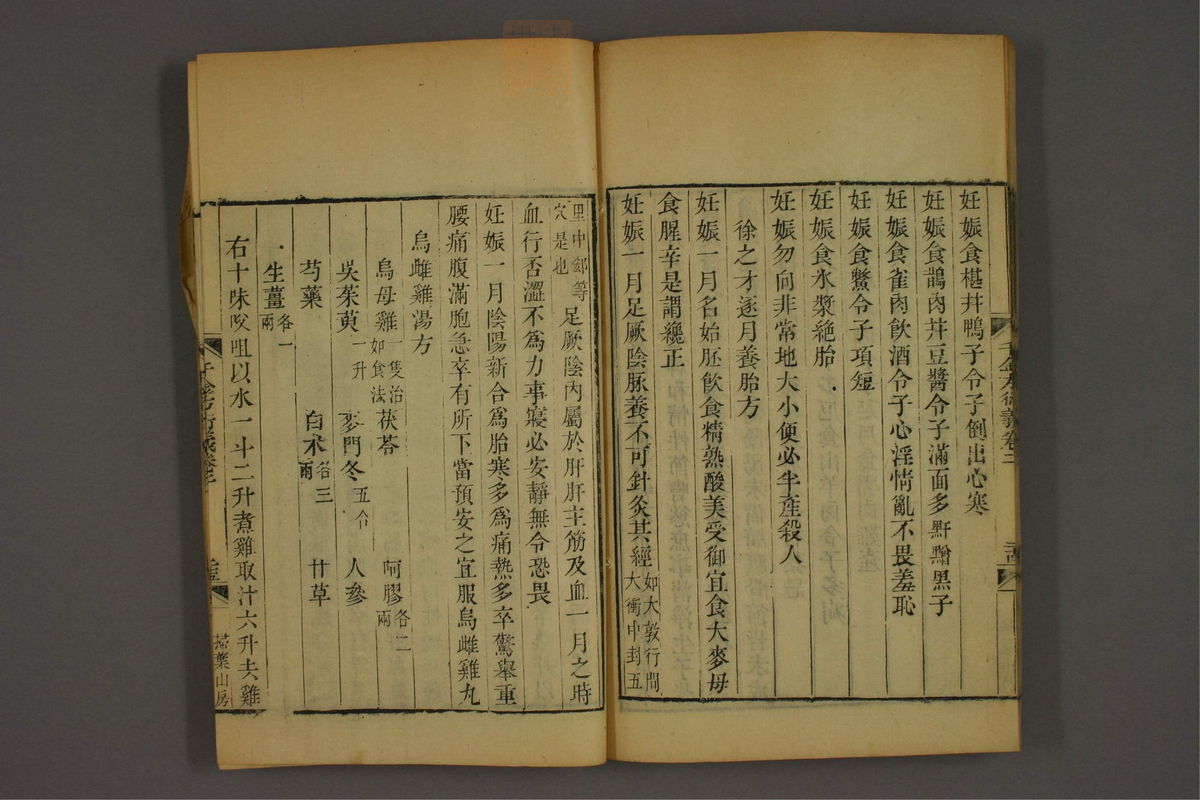 妊娠食椹幷鴨子令子倒出心寒
妊娠食鵲肉幷豆醬令子滿面多䵟䵳黑子
妊娠食雀肉飲酒令子心淫情亂不畏羞恥
妊娠食鱉令子項短
妊娠食水漿絶胎
妊娠勿向非常地大小便必半產殺人
徐之才逐月養胎方
妊娠一月名始胚飲食精熟酸美受御宜食大麥毋
食腥辛是謂纔正
妊娠一月足厥陰脉養不可針灸其經如大敦行間
大衝中封五
里中郄等
穴是也足厥陰內屬於肝肝主筋及血一月之時
血行否澀不爲力事寢必安靜無令恐畏
妊娠一月陰陽新合爲胎寒多爲痛熱多卒驚舉重
腰痛腹滿胞急卒有所下當預安之宜服烏雌雞丸
烏雌雞湯方
烏母雞一隻治如食法 茯苓 阿膠各二兩
吳茱萸一升 麥門冬五合 人參
芍藥 白朮各三兩 甘草
生薑各一兩
右十味㕮咀以水一斗二升煮雞取汁六升去雞
千金方衍義卷二
掃葉山房